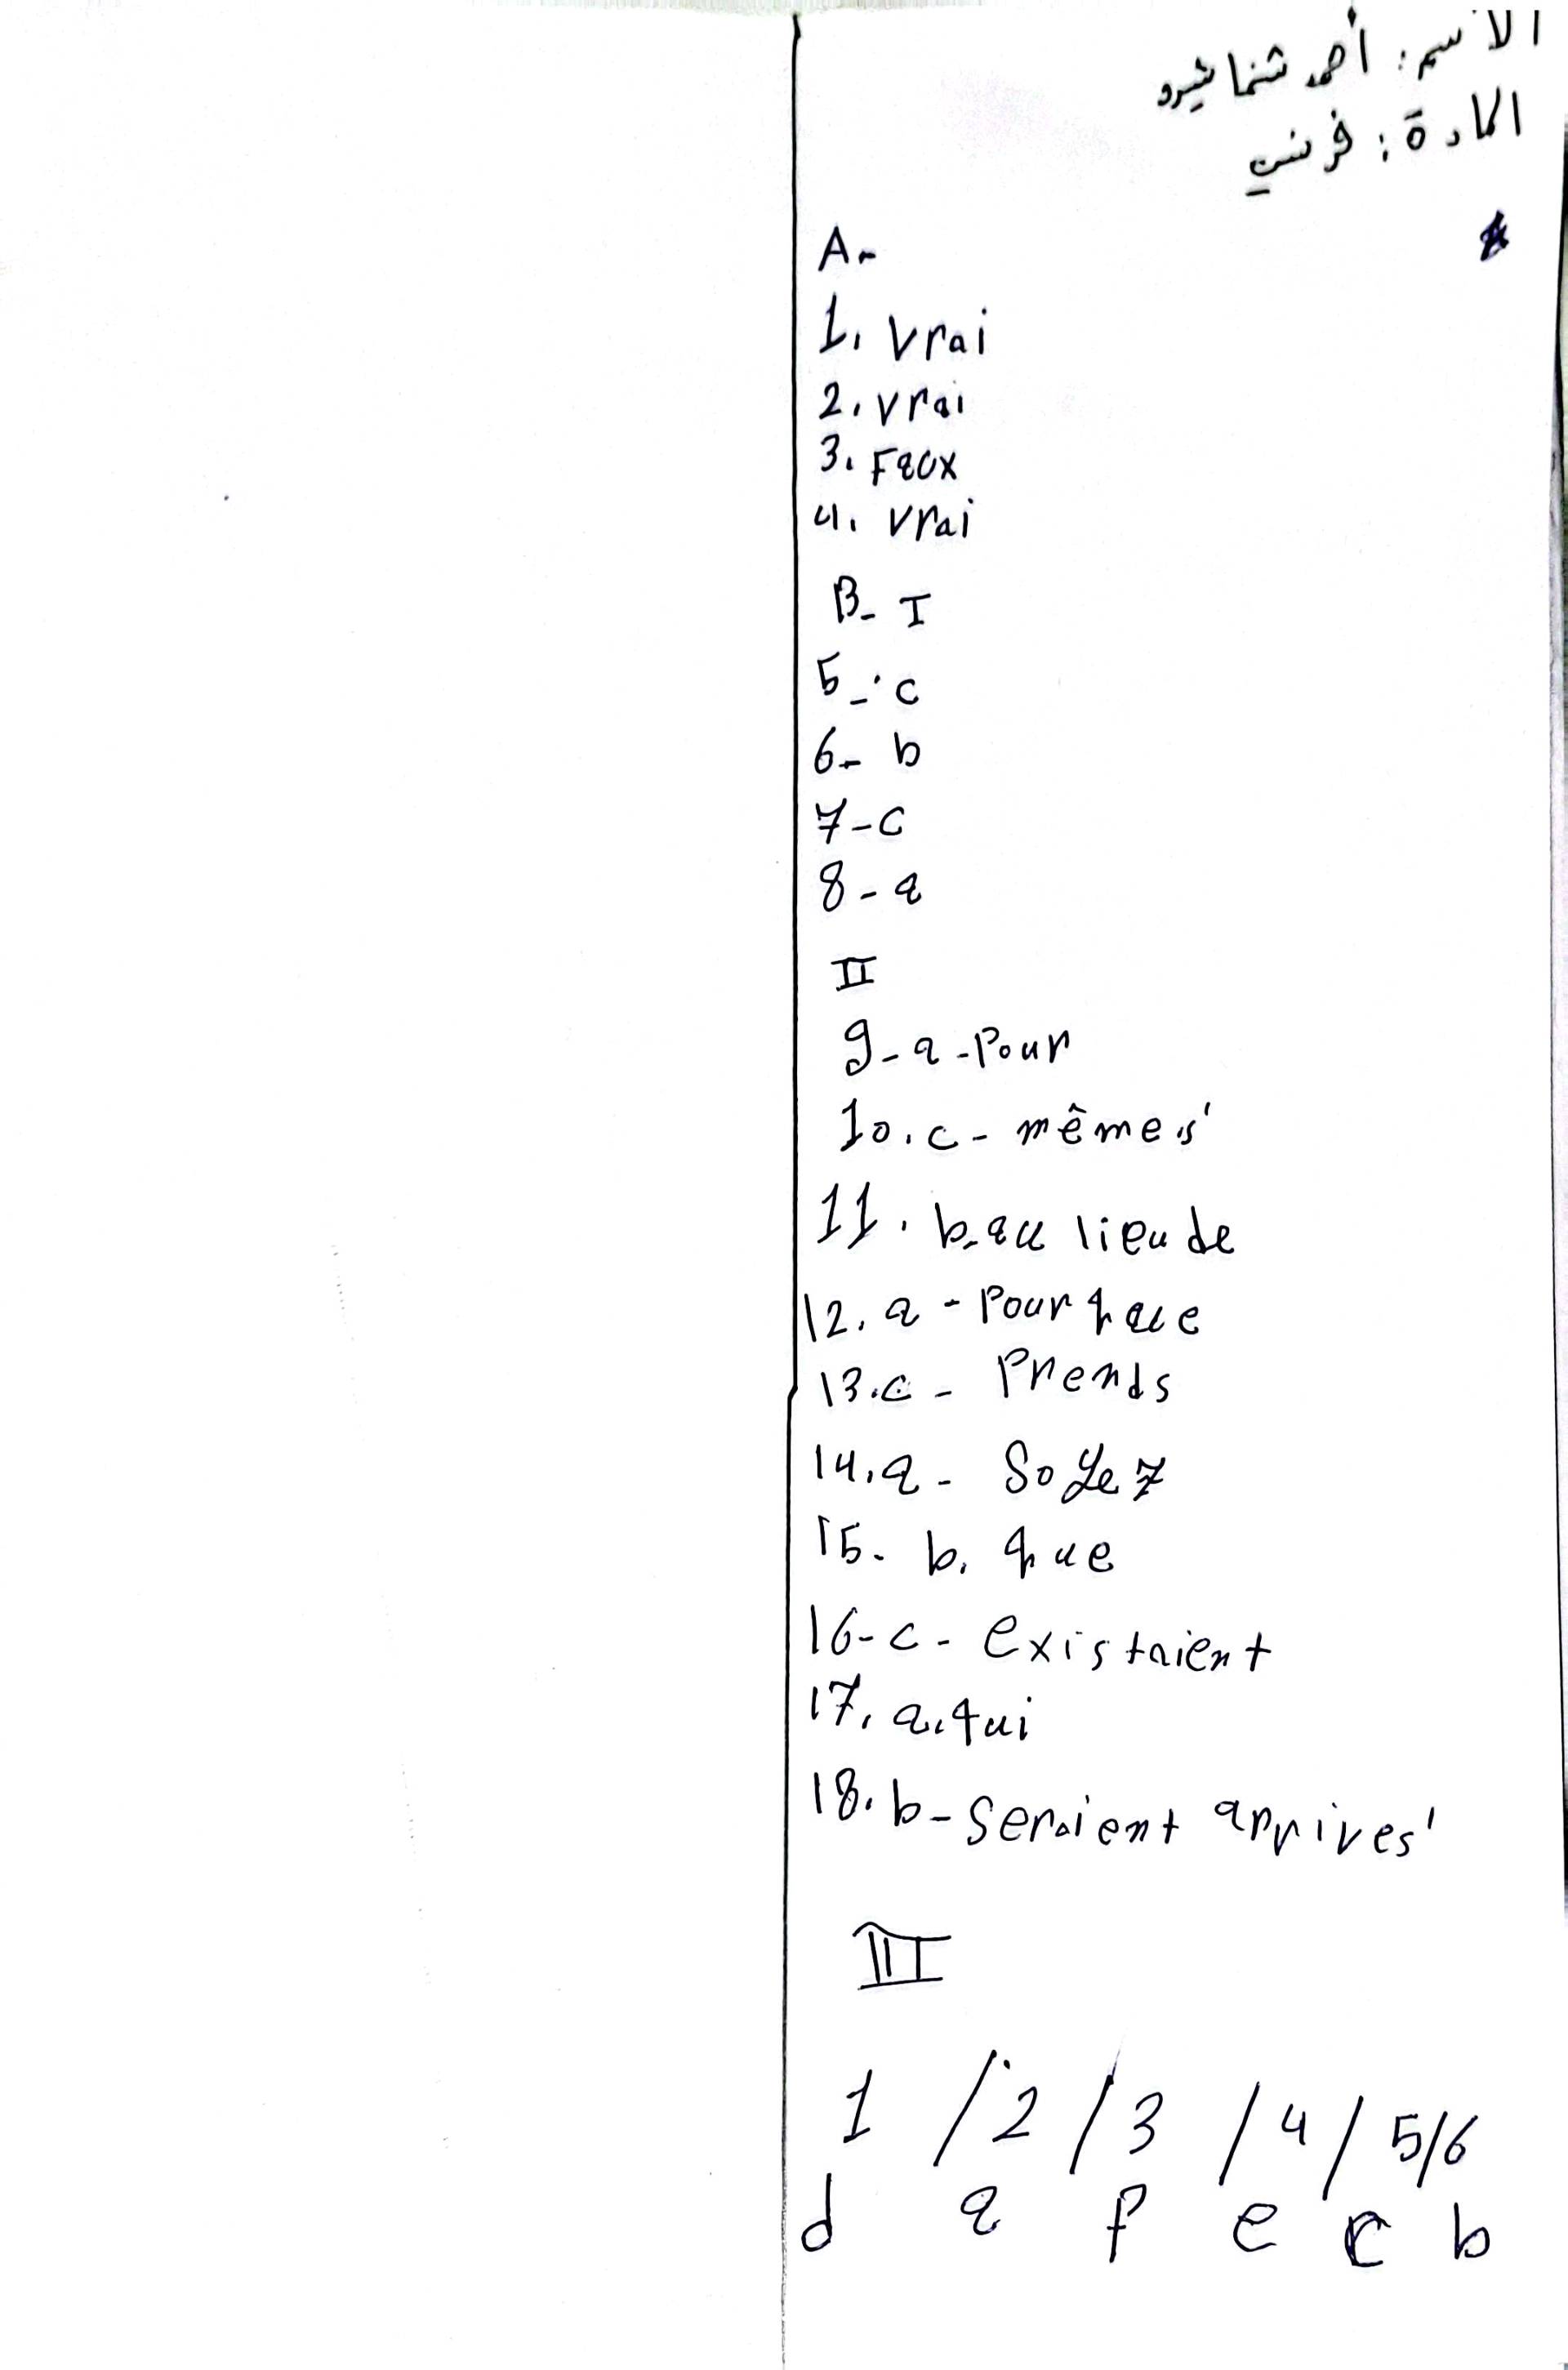 الاسم: أحمد شنما شيرو
المادة: فرنسي
A-
1. Vrai
2. Vrai
3. Faux
4. Vrai
B- I
5- c
6- b
7- c
8- a
II
9- a - Pour
10. c - mêmes
11. b. au lieu de
12. a - Pour que
13. c - Prends
14. a - Soyez
15- b. que
16- c - existaient
17. a. qui
18. b - Seraient arrivés
III
1 / 2 / 3 / 4 / 5/6
d a f e c b